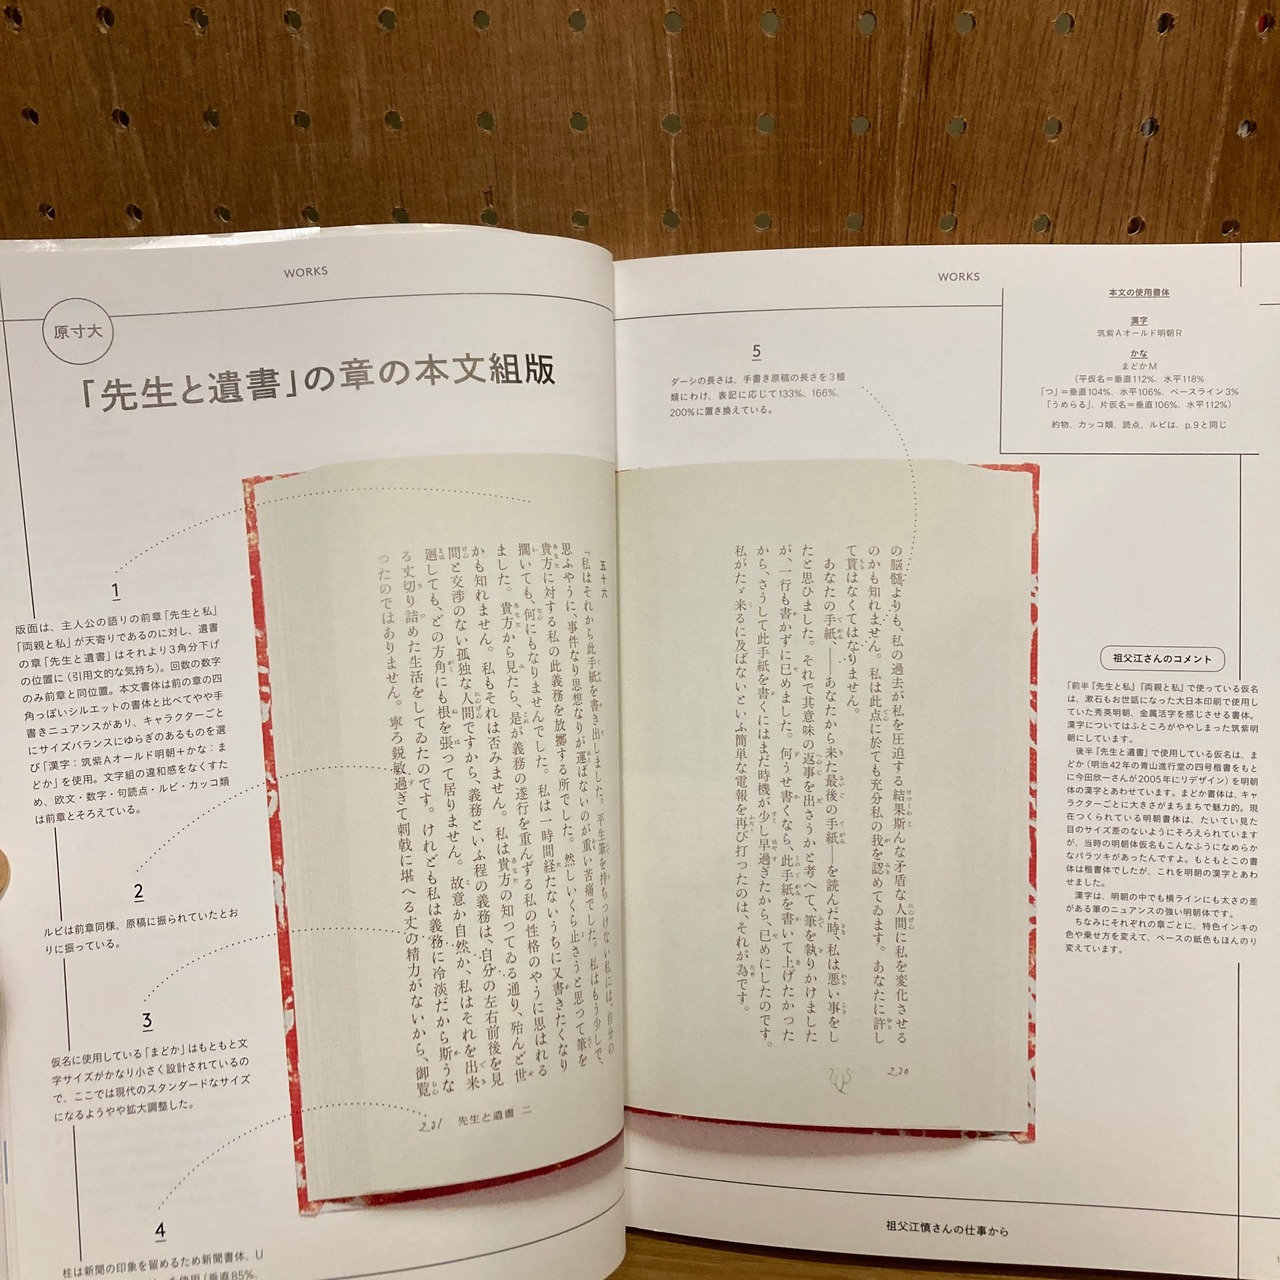 WORKS
原寸大
「先生と遺書」の章の本文組版
1
版面は、主人公の語りの前章「先生と私」
「両親と私」が天寄りであるのに対し、遺書
の章「先生と遺書」はそれより3角分下げ
の位置に（引用文的な気持ち）。回数の数字
のみ前章と同位置。本文書体は前の章の四
角っぽいシルエットの書体と比べてやや手
書きニュアンスがあり、キャラクターごと
にサイズバランスにゆらぎのあるものを選
び「漢字：筑紫Aオールド明朝＋かな：ま
どか」を使用。文字組の違和感をなくすた
め、欧文・数字・句読点・ルビ・カッコ類
は前章とそろえている。
2
ルビは前章同様、原稿に振られていたとお
りに振っている。
3
仮名に使用している「まどか」はもともと文
字サイズがかなり小さく設計されているの
で、ここでは現代のスタンダードなサイズ
になるようやや拡大調整した。
4
柱は新聞の印象を留めるため新聞書体、U
を使用（垂直85%、
五十六
「私はそれから此手紙を書き出しました。平生筆を持ちつけない私には、自分の
思ふやうに、事件なり思想なりが運ばないのが重い苦痛でした。私はもう少しで、
貴方に対する私の此義務を放擲する所でした。然しいくら止さうと思つて筆を
擱いても、何にもなりませんでした。私は一時間経たないうちに又書きたくなり
ました。貴方から見たら、是が義務の遂行を重んずる私の性格のやうに思はれる
かも知れません。私もそれは否みません。私は貴方の知つてゐる通り、殆んど世
間と交渉のない孤独な人間ですから、義務といふ程の義務は、自分の左右前後を見
廻しても、どの方角にも根を張つて居りません。故意か自然か、私はそれを出来
る丈切り詰めた生活をしてゐたのです。けれども私は義務に冷淡だから斯うな
つたのではありません。寧ろ鋭敏過ぎて刺戟に堪へる丈の精力がないから、御覧
231 先生と遺書 二
WORKS
5
ダーシの長さは、手書き原稿の長さを3種
類にわけ、表記に応じて133%、166%、
200%に置き換えている。
本文の使用書体
漢字
筑紫AオールドR明朝R
かな
まどかM
（平仮名＝垂直112%、水平118%
「つ」＝垂直104%、水平106%、ベースライン3%
「うめらる」、片仮名＝垂直106%、水平112%）
約物、カッコ類、読点、ルビは、p.9と同じ
の脳髄よりも、私の過去が私を圧迫する結果斯んな矛盾な人間に私を変化させる
のかも知れません。私は此点に於ても充分私の我を認めてゐます。あなたに許し
て貰はなくてはなりません。
あなたの手紙、――あなたから来た最後の手紙――を読んだ時、私は悪い事をし
たと思ひました。それで其意味の返事を出さうかと考へて、筆を執りかけました
が、一行も書かずに已めました。何うせ書くなら、此手紙を書いて上げたかつた
から、さうして此手紙を書くにはまだ時機が少し早過ぎたから、已めにしたのです。
私がたゞ来るに及ばないといふ簡単な電報を再び打つたのは、それが為です。
230
祖父江さんのコメント
「前半『先生と私』『両親と私』で使っている仮名
は、漱石もお世話になった大日本印刷で使用し
ていた秀英明朝、金属活字を感じさせる書体。
漢字についてはふところがややしまった筑紫明
朝にしています。
後半『先生と遺書』で使用している仮名は、ま
どか（明治42年の青山進行堂の四号楷書をもと
に今田欣一さんが2005年にリデザイン）を明朝
体の漢字とあわせています。まどか書体は、キャ
ラクターごとに大きさがまちまちで魅力的。現
在つくられている明朝書体は、たいてい見た
目のサイズ差のないようにそろえられています
が、当時の明朝体仮名もこんなふうになめらか
なバラツキがあったんですよ。もともとこの書
体は楷書体でしたが、これを明朝の漢字とあわ
せました。
漢字は、明朝の中でも横ラインにも太さの差
がある筆のニュアンスの強い明朝体です。
ちなみにそれぞれの章ごとに、特色インキの
色や乗せ方を変えて、ベースの紙色もほんのり
変えています。
祖父江慎さんの仕事から